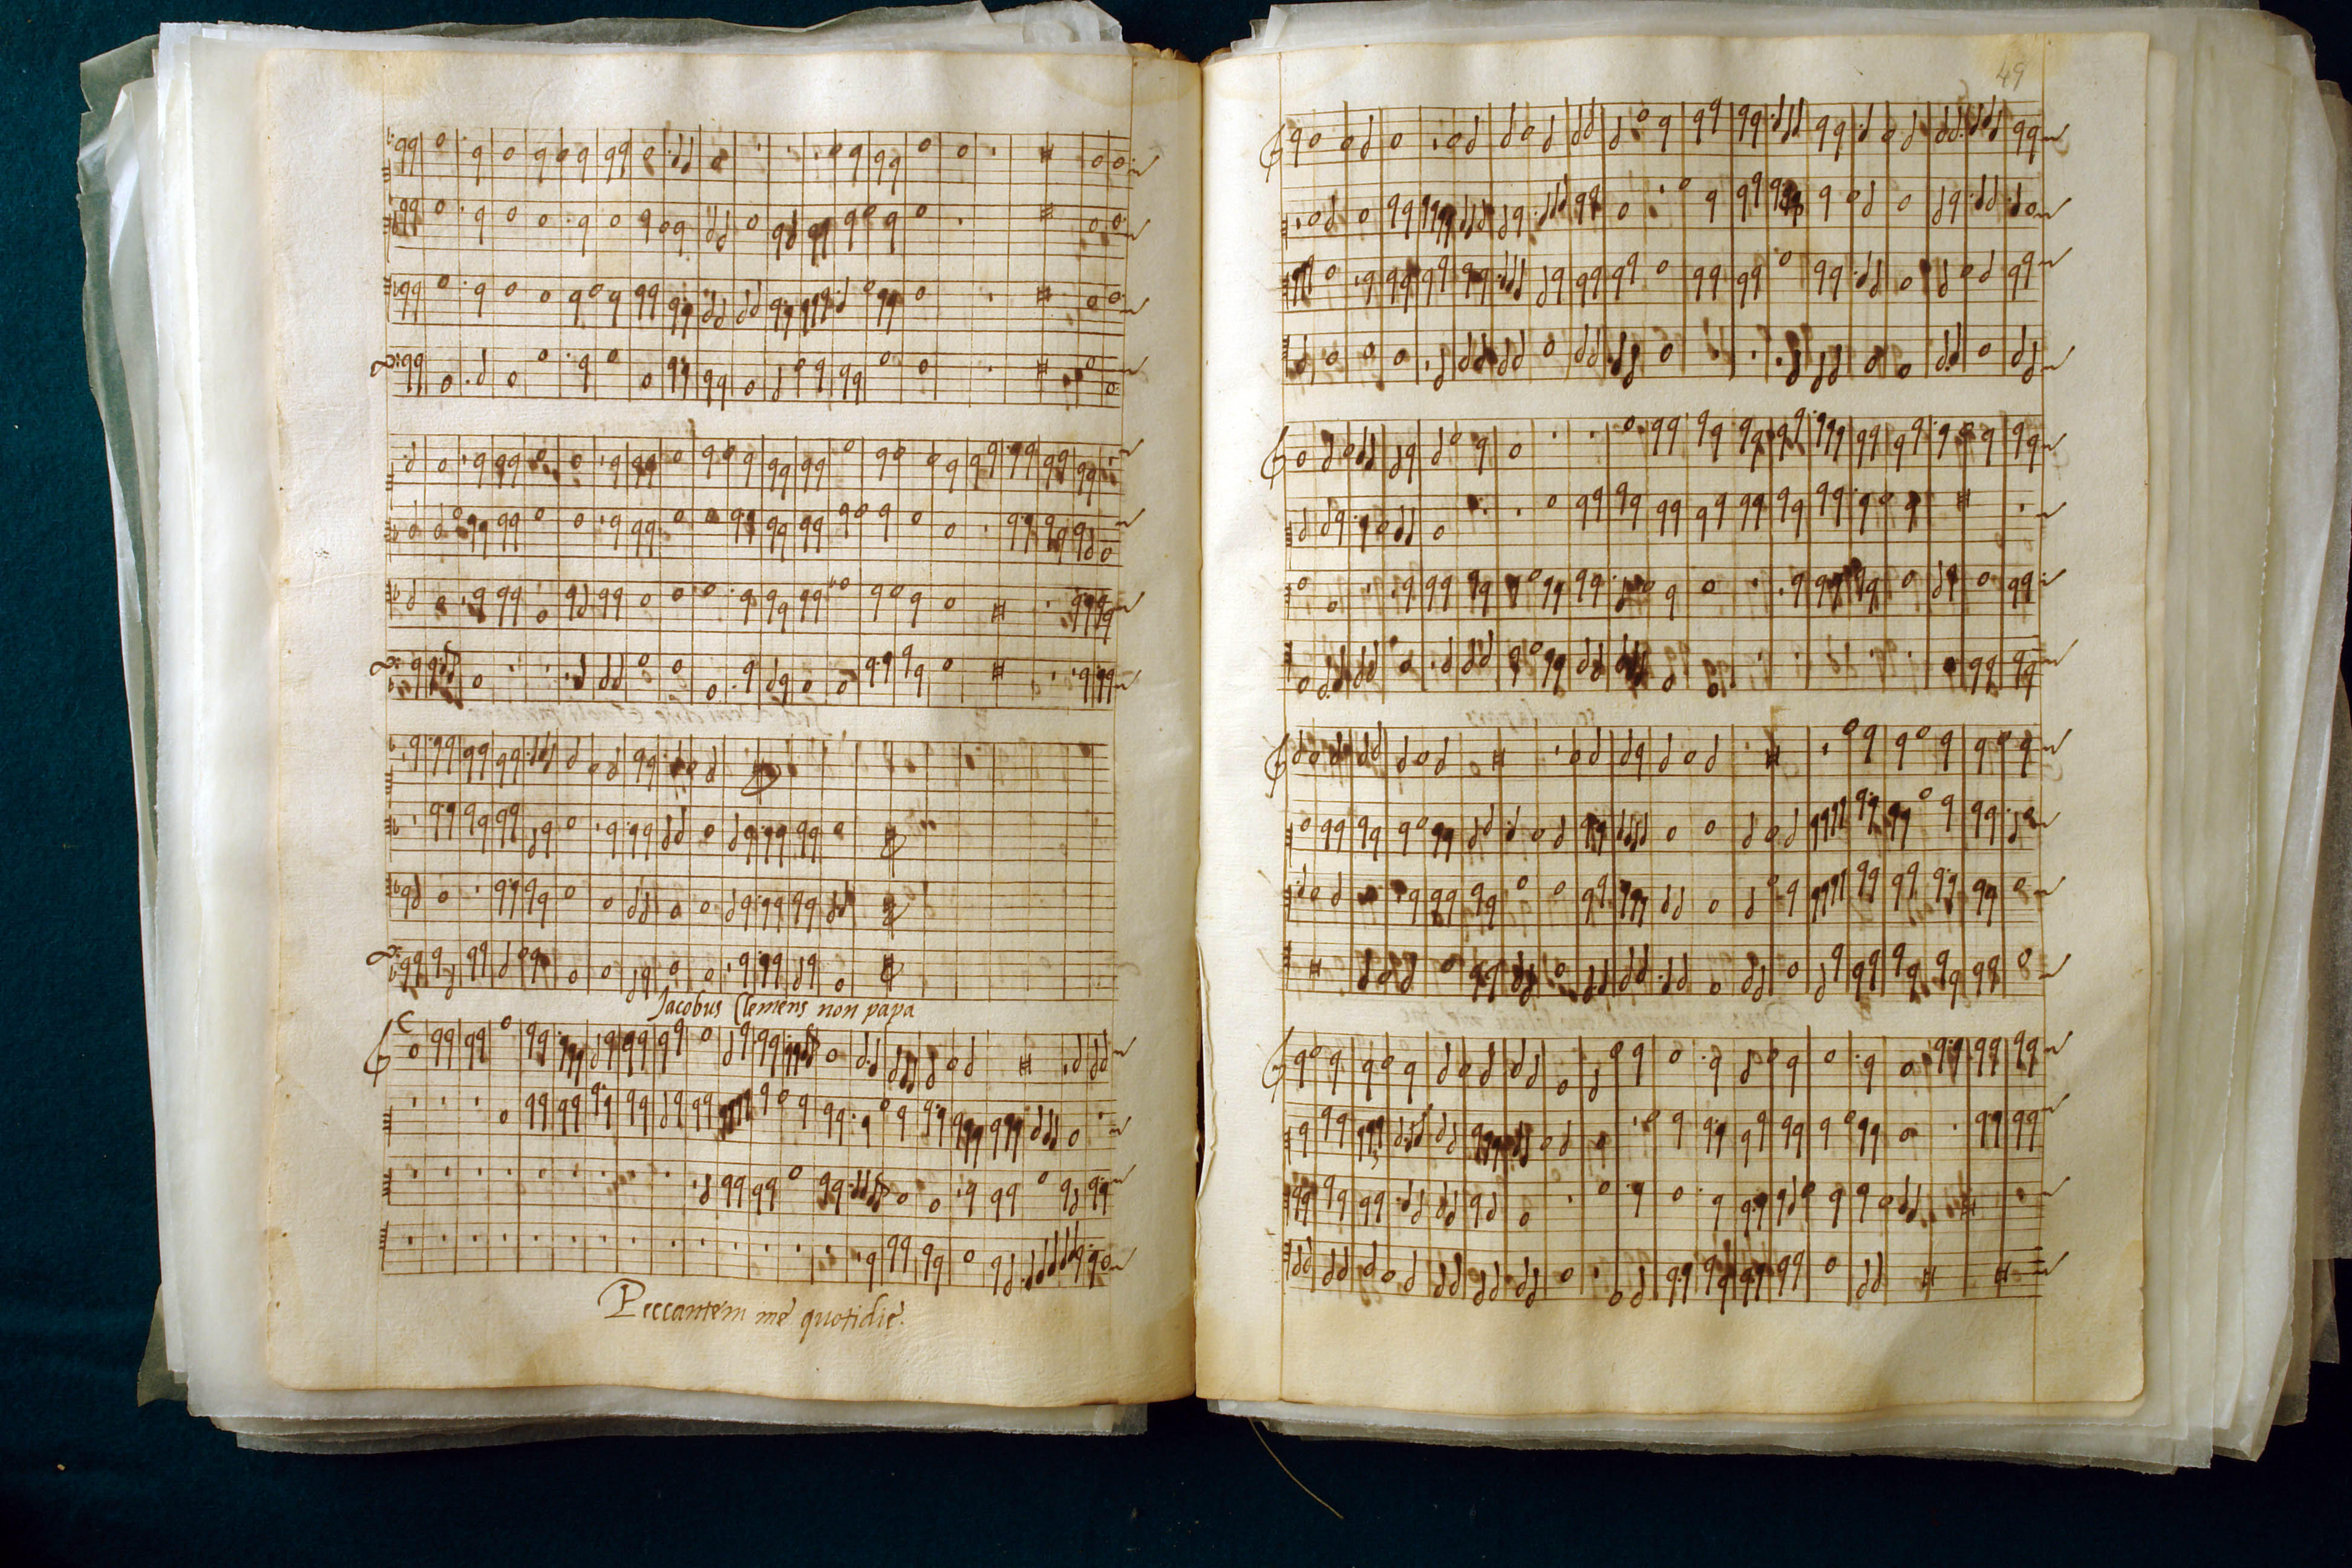 49
Jacobus Clemens non papa
C
Peccantem me quotidie.